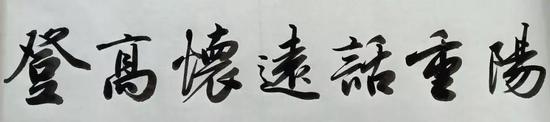 登高懷遠話重陽